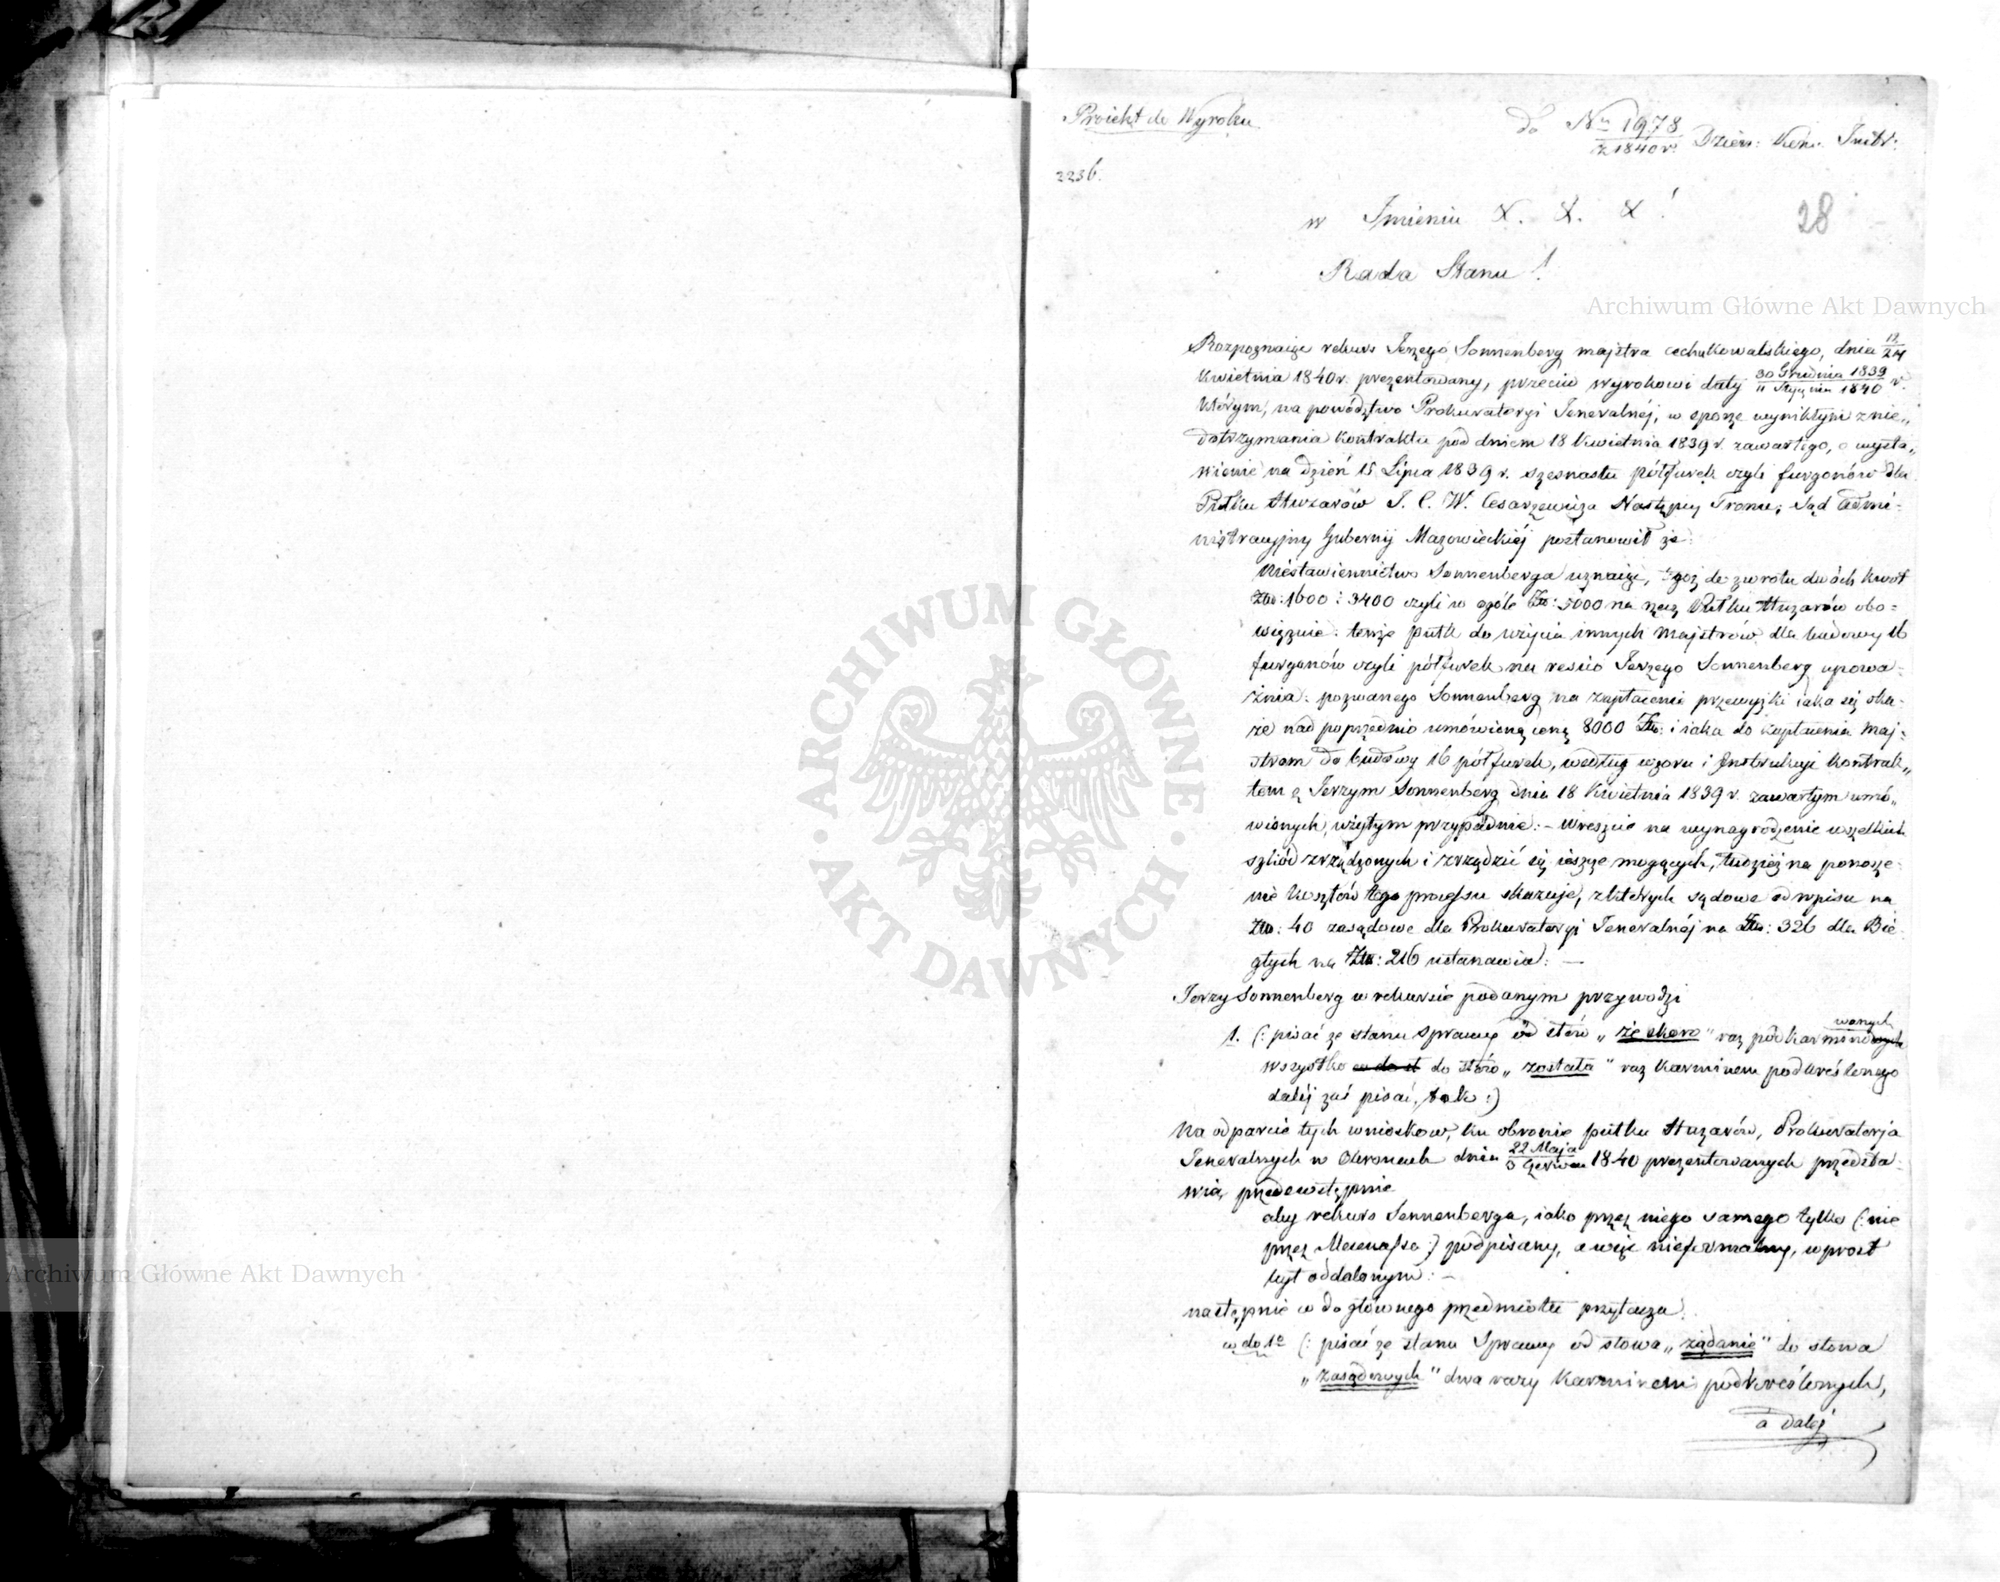 Proiekt do Wyroku
do Nru 1978 z 1840 r. Dzien: Kom. Instr:
2236.
28
w Imieniu &. &. &!
Rada Stanu!
Archiwum Główne Akt Dawnych
Rozpoznaiąc rekurs Jerzego Sonnenberg majstra cechu kowalskiego, dnia 12/24
Kwietnia 1840 r. prezentowany, przeciw wyrokowi daty 30 Grudnia 1839/11 Stycznia 1840 r.
którym, na powództwo Prokuratorji Jeneralnéj, w sporze wynikłym z nie„
dotrzymania kontraktu pod dniem 18 Kwietnia 1839 r. zawartego, o wysta„
wienie na dzień 15 Lipca 1839 r. szesnastu półfurek czyli furgonów dla
Pułku Huzarów J. C. W. Cesarzewicza Następcy Tronu, Sąd Admi-
nistracyjny Gubernij Mazowieckiéj postanowił że:
Niestawiennictwo Sonnenberga uznaiąc, tegoż do zwrotu dwóch kwot
Złp: 1600 i 3400 czyli w ogóle Złp: 5000 na rzecz Pułku Huzarów obo-
wiązuie: tenże pułk do użycia innych majstrów dla budowy 16
furgonów czyli półfurek na resico Jerzego Sonnenberg upowa-
żnia: pozwanego Sonnenberg na zapłacenie przewyżki iaka się oka-
że nad poprzednio umówioną cenę 8000 Złp: i iaka do zapłacenia maj-
strom do budowy 16 półfurek, według wzoru i Instrukcji kontrak„
tem z Jerzym Sonnenberg dnia 18 Kwietnia 1839 r. zawartym umó„
wionych, użytym przypadnie: - Wreszcie na wynagrodzenie wszelkich
szkód zrządzonych i zrządzić się ieszcze mogących, tudzież na ponosze-
nie kosztów tego processu skazuje, z których sądowe od wpisu na
Złp: 40 zasądowe dla Prokuratorji Jeneralnéj na Złp: 326 dla Bie-
głych na Złp: 216 ustanawia: —
Jerzy Sonnenberg w rekursie podanym przywodzi
1. (: pisać ze stanu sprawy od słów „że skoro" raz podkarminowanych
wszystko do słów „została" raz karminem podkreślonego
daléj zaś pisać, tak :)
Na odparcie tych wniosków, ku obronie pułku Huzarów, Prokuratorja
Jeneralnych w Obronach dnia 22 Maja/3 Czerwca 1840 prezentowanych przedsta-
wia, przedewstępnie
aby rekurs Sonnenberga, iako przez niego samego tylko (: nie
przez Mecenassa :) podpisany, a więc nieformalny, wprost
był oddalonym: —
następnie co do głównego przedmiotu przytacza:
co do 1o (: pisać ze stanu Sprawy od słowa „żądanie" do słowa
„zasądowych" dwa razy karminem podkreślonych,
a daléj
Archiwum Główne Akt Dawnych
ARCHIWUM GŁÓWNE · AKT DAWNYCH ·